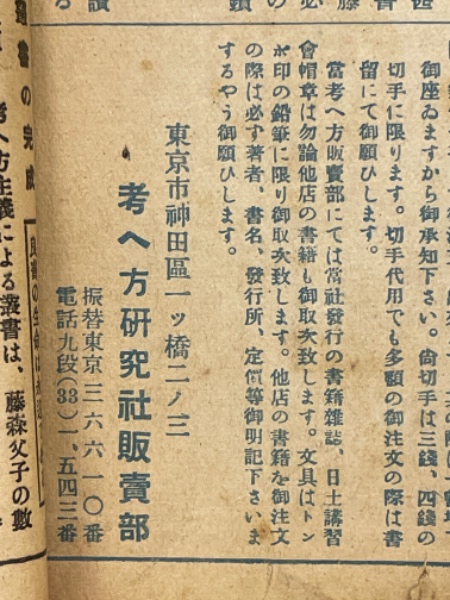 御座ゐますから御承知下さい。尙切手は三錢、四錢の
切手に限ります。切手代用でも多額の御注文の際は書
留にて御願ひします。
當考へ方販賣部にては當社發行の書籍雜誌、日土講習
會帽章は勿論他店の書籍も御取次致します。文具はトン
ボ印の鉛筆に限り御取次致します。他店の書籍を御注文
の際は必ず著者、書名、發行所、定價等御明記下さいま
するやう御願ひします。
東京市神田區一ッ橋二ノ三
考へ方硏究社販賣部
振替東京三六六一〇番
電話九段(33)一、五四三番
の完成
考へ方主義による叢書は、藤森父子の數